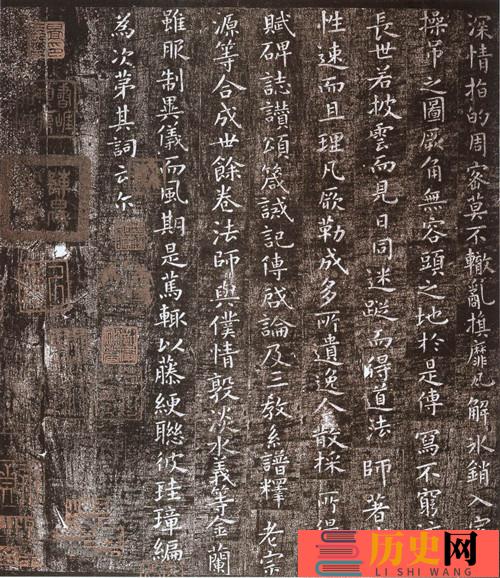 深情指的周密莫不轍亂旗靡瓦解冰銷入室
操矛之圖厥角無容頭之地於是傳寫不窮
長世若披雲而見日同迷蹤而得道法師著
性速而且理凡厥勒成多所遺逸今散採所得
賦碑誌讚頌箴誡記傳啟論及三教系譜釋老宗
源等合成卅餘卷法師與僕情敦淡水義等金蘭
雖服制異儀而風期是篤輒以藤綆聯彼珪璋編
為次第其詞云尒
历史网
LI SHI WANG